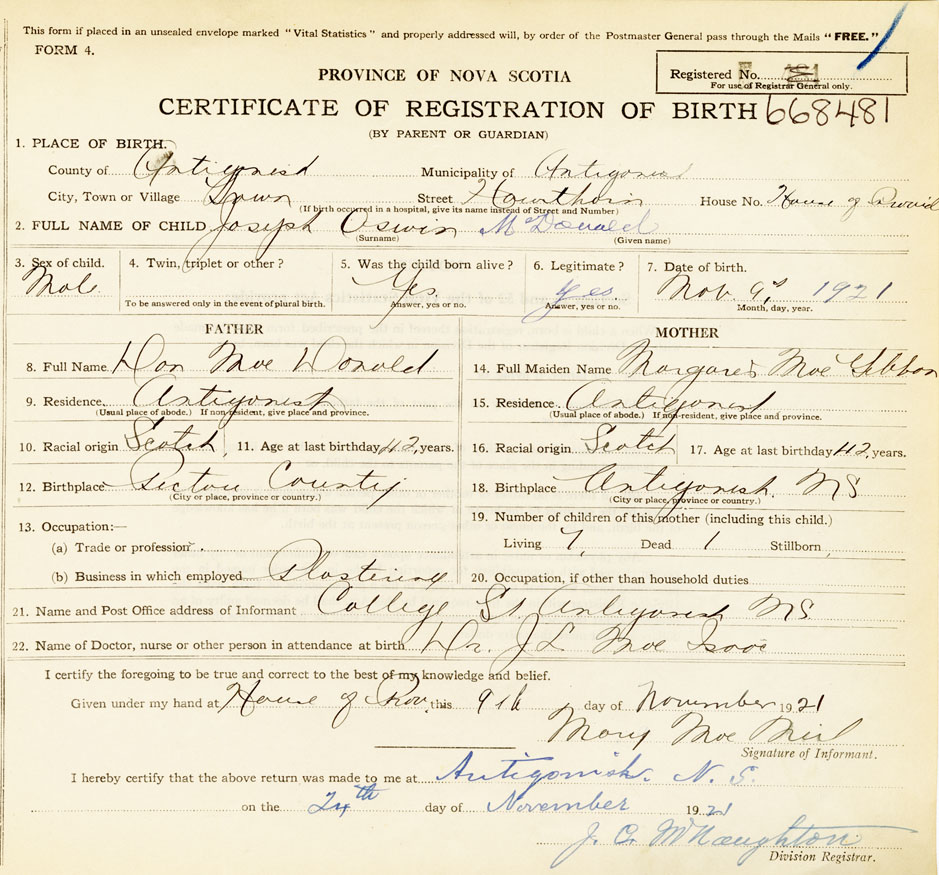 This form if placed in an unsealed envelope marked "Vital Statistics" and properly addressed will, by order of the Postmaster General pass through the Mails "FREE."
FORM 4.
PROVINCE OF NOVA SCOTIA
Registered No.
For use of Registrar General only.
CERTIFICATE OF REGISTRATION OF BIRTH 668481
(BY PARENT OR GUARDIAN)
1. PLACE OF BIRTH.
County of Antigonish Municipality of Antigonish
City, Town or Village Town Street Hawthorn House No. House of Provid
(If birth occurred in a hospital, give its name instead of Street and Number)
2. FULL NAME OF CHILD Joseph Oswin McDonald
(Surname) (Given name)
3. Sex of child. 4. Twin, triplet or other? 5. Was the child born alive? 6. Legitimate? 7. Date of birth.
Male Yes yes Nov. 9, 1921
To be answered only in the event of plural birth. Answer, yes or no. Answer, yes or no. Month, day, year.
FATHER MOTHER
8. Full Name Dan Mac Donald 14. Full Maiden Name Margaret Mac Gibbon
9. Residence. Antigonish 15. Residence. Antigonish
(Usual place of abode.) If non-resident, give place and province. (Usual place of abode.) If non-resident, give place and province.
10. Racial origin Scotch 11. Age at last birthday 42, years. 16. Racial origin Scotch 17. Age at last birthday 42, years.
12. Birthplace Pictou County 18. Birthplace Antigonish. NS
(City or place, province or country.) (City or place, province or country.)
13. Occupation:— 19. Number of children of this mother (including this child.)
(a) Trade or profession Living 7, Dead 1 Stillborn
(b) Business in which employed Plastering 20. Occupation, if other than household duties
21. Name and Post Office address of Informant College St. Antigonish NS
22. Name of Doctor, nurse or other person in attendance at birth Dr. J L Mac Isaac
I certify the foregoing to be true and correct to the best of my knowledge and belief.
Given under my hand at House of Prov. this 9th day of November 1921
Mary Mac Neil
Signature of Informant.
I hereby certify that the above return was made to me at Antigonish. N. S.
on the 24th day of November 1921
J. C. McNaughton
Division Registrar.